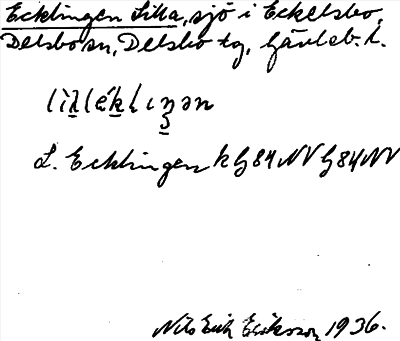 Ecklingen Lilla, sjö i Eckelsbo,
Delsbo sn, Delsbo tg, Gävleb. l.
L. Ecklingen k G84NV G84NV
Nils Erik Eriksson 1936.